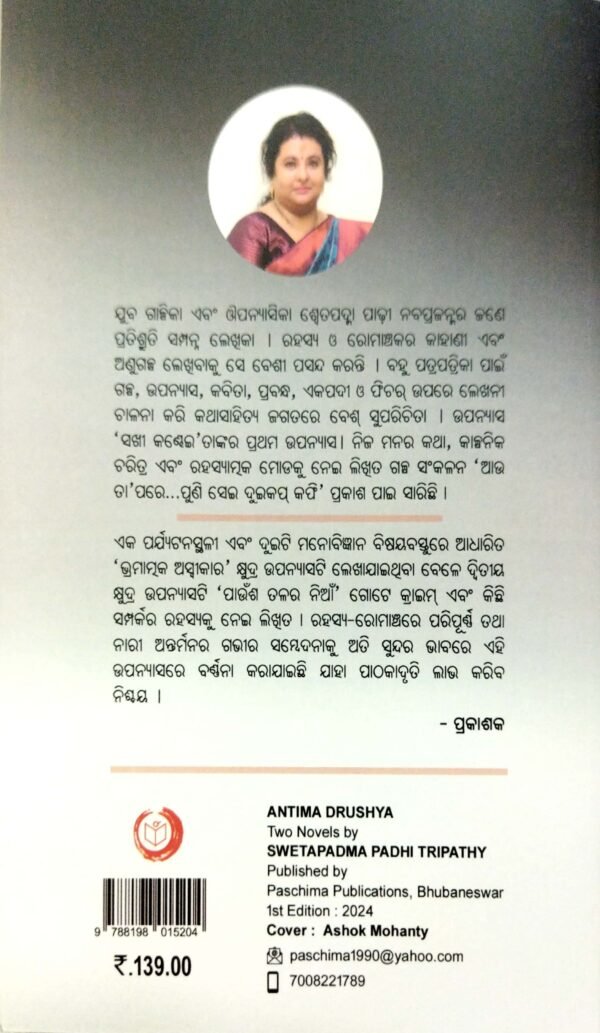 ଯୁବ ଗାଳ୍ପିକା ଏବଂ ଔପନ୍ୟାସିକା ଶ୍ୱେତପଦ୍ମା ପାଢ଼ୀ ନବପ୍ରଜନ୍ମର ଜଣେ
ପ୍ରତିଶ୍ରୁତି ସମ୍ପନ୍ନ ଲେଖିକା । ରହସ୍ୟ ଓ ରୋମାଞ୍ଚକର କାହାଣୀ ଏବଂ
ଅଣୁଗଳ୍ପ ଲେଖିବାକୁ ସେ ବେଶୀ ପସନ୍ଦ କରନ୍ତି । ବହୁ ପତ୍ରପତ୍ରିକା ପାଇଁ
ଗଳ୍ପ, ଉପନ୍ୟାସ, କବିତା, ପ୍ରବନ୍ଧ, ଏକପଦୀ ଓ ଫିଚର୍ ଉପରେ ଲେଖନୀ
ଚାଳନା କରି କଥାସାହିତ୍ୟ ଜଗତରେ ବେଶ୍ ସୁପରିଚିତା । ଉପନ୍ୟାସ
‘ସଖୀ କଣ୍ଢେଇ’ ତାଙ୍କର ପ୍ରଥମ ଉପନ୍ୟାସ। ନିଜ ମନର କଥା, କାଳ୍ପନିକ
ଚରିତ୍ର ଏବଂ ରହସ୍ୟାତ୍ମକ ମୋଡକୁ ନେଇ ଲିଖିତ ଗଳ୍ପ ସଂକଳନ ‘ଆଉ
ତା’ପରେ...ପୁଣି ସେଇ ଦୁଇକପ୍ କଫି’ ପ୍ରକାଶ ପାଇ ସାରିଛି ।
ଏକ ପର୍ଯ୍ୟଟନସ୍ଥଳୀ ଏବଂ ଦୁଇଟି ମନୋବିଜ୍ଞାନ ବିଷୟବସ୍ତୁରେ ଆଧାରିତ
‘ଭ୍ରମାତ୍ମକ ଅସ୍ୱୀକାର’ କ୍ଷୁଦ୍ର ଉପନ୍ୟାସଟି ଲେଖାଯାଇଥିବା ବେଳେ ଦ୍ୱିତୀୟ
କ୍ଷୁଦ୍ର ଉପନ୍ୟାସଟି ‘ପାଉଁଶ ତଳର ନିଆଁ’ ଗୋଟେ କ୍ରାଇମ୍ ଏବଂ କିଛି
ସମ୍ପର୍କର ରହସ୍ୟକୁ ନେଇ ଲିଖିତ । ରହସ୍ୟ-ରୋମାଞ୍ଚରେ ପରିପୂର୍ଣ୍ଣ ତଥା
ନାରୀ ଅନ୍ତର୍ମନର ଗଭୀର ସମ୍ବେଦନାକୁ ଅତି ସୁନ୍ଦର ଭାବରେ ଏହି
ଉପନ୍ୟାସରେ ବର୍ଣ୍ଣନା କରାଯାଇଛି ଯାହା ପାଠକାଦୃତି ଲାଭ କରିବ
ନିଶ୍ଚୟ ।
- ପ୍ରକାଶକ
ANTIMA DRUSHYA
Two Novels by
SWETAPADMA PADHI TRIPATHY
Published by
Paschima Publications, Bhubaneswar
1st Edition : 2024
Cover : Ashok Mohanty
paschima1990@yahoo.com
7008221789
9 788198 015204
₹.139.00